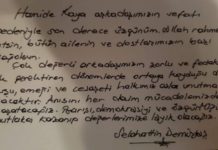 Hamide Kaya arkadaşımızın vefatı
nedeniyle son derece üzgünüm. Allah rahmet
etsin, bütün ailenin ve dostlarımızın başı
sağolsun.
Çok değerli arkadaşımızın zorlu ve fedakar
dönemlerde ortaya koyduğu
emeği ve cesareti halkımız asla unutma
Anısını her daim mücadelemizde
yaşatacağız. Barışı, demokrasiyi ve özgürlüğü
mutlaka kazanıp değerlerimize layık olacağız.
Selahattin Demirtaş